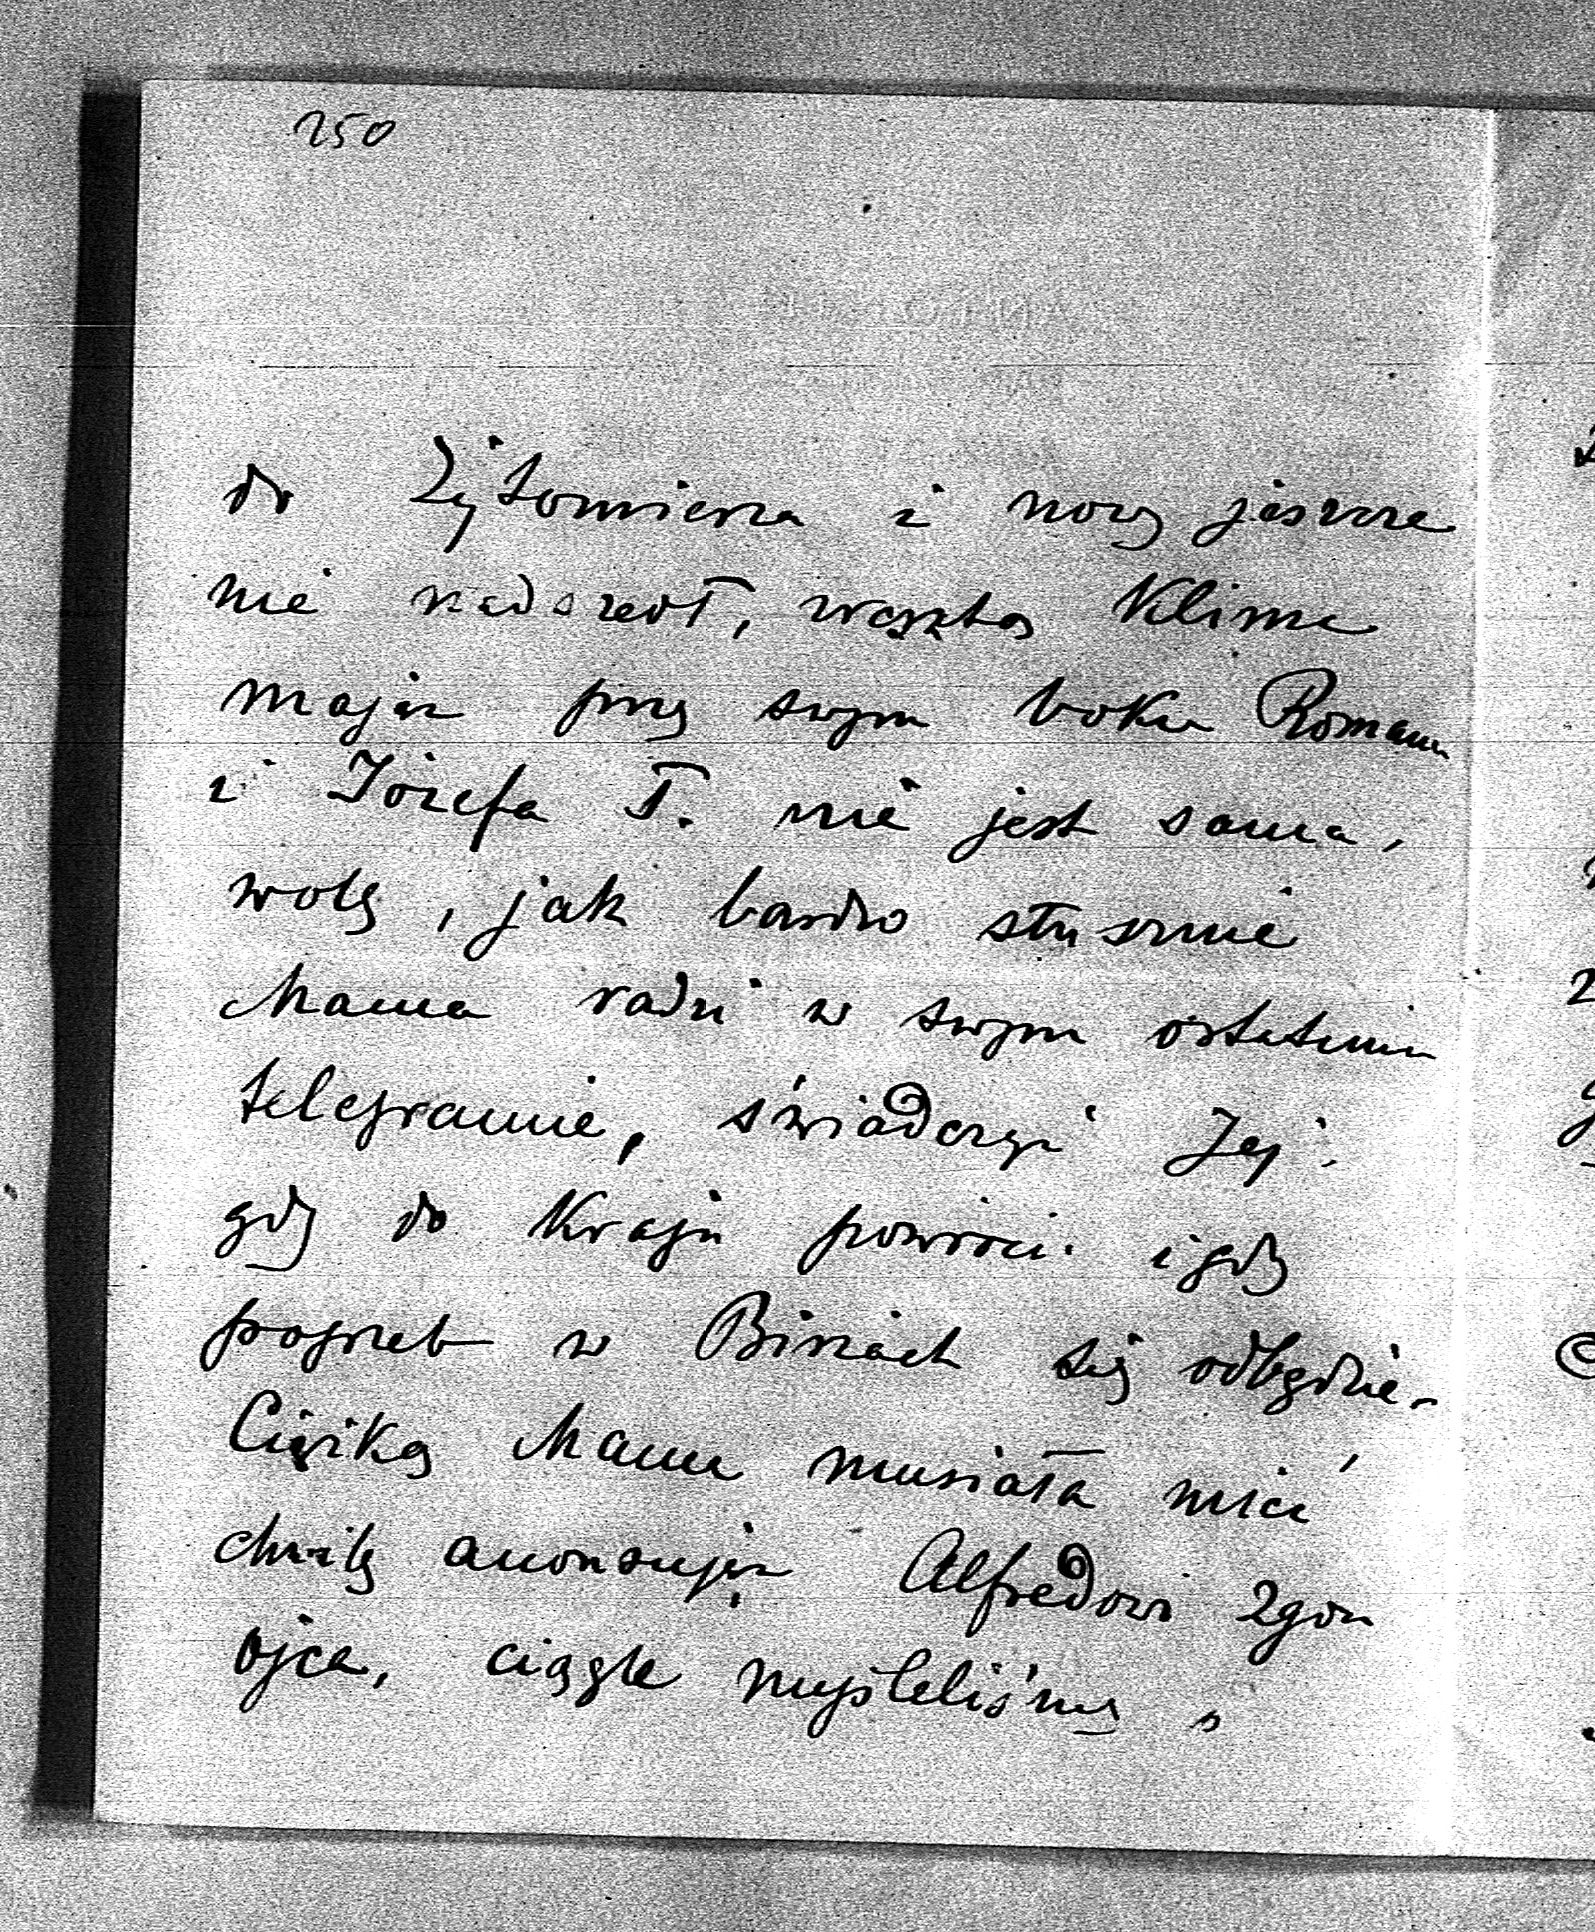 250
do Żytomierza i nowy jeszcze
nie nadszedł, zresztą Klima
mając przy swym boku Romana
i Józefa T. nie jest sama,
wolę, jak bardzo słusznie
Mama radzi w swym ostatnim
telegramie, świadczyć Jej
gdy do Kraju powróci i gdy
pogrzeb w Birżach się odbędzie.
Ciężką Mama musiała mieć
chwilę anonsując Alfredowi zgon
ojca, ciągle myśleliśmy o